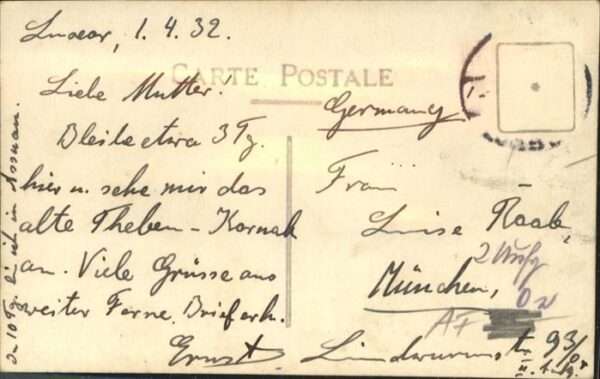 Luxor, 1.4.32.
CARTE POSTALE
Liebe Mutter!
Bleibe etwa 3 Tg.
hier u. sehe mir das
alte Theben - Karnak
an. Viele Grüsse aus
weiter Ferne. Brief erh.
Ernst.
In 10 Tg. bin ich in Assuan.
Germany
Frau
Luise Raab,
München,
Lindwurmstr. 93/0